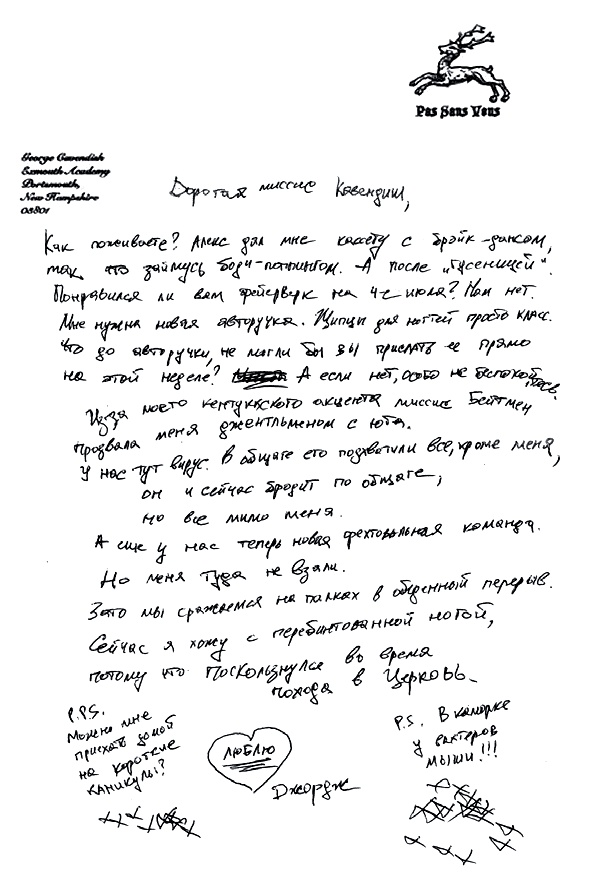 Pas Sans Vous
George Cavendish
Exmouth Academy
Portsmouth,
New Hampshire
03801
Дорогая миссис Кавендиш,
Как поживаете? Алекс дал мне кассету с брэйк-дансом,
так что займусь боди-поппингом. А после „Гусеницей".
Понравился ли вам фейерверк на 4е июля? Нам нет.
Мне нужна новая авторучка. Щипцы для ногтей просто класс.
Что до авторучки, не могли бы вы прислать ее прямо
на этой неделе? А если нет, особо не беспокойтесь.
Из-за моего кентуккского акцента миссис Бейтмен
прозвала меня джентльменом с юга.
У нас тут вирус. В общаге его подхватили все, кроме меня,
он и сейчас бродит по общаге,
но все мимо меня.
А еще у нас теперь новая фехтовальная команда.
Но меня туда не взяли.
Зато мы сражаемся на палках в обеденный перерыв.
Сейчас я хожу с перебинтованной ногой,
потому что поскользнулся во время
похода в Церковь.
P.P.S.
Можно мне
приехать домой
на короткие
каникулы?
ЛЮБЛЮ
Джордж
P.S. В каморке
у вахтеров
мыши!!!